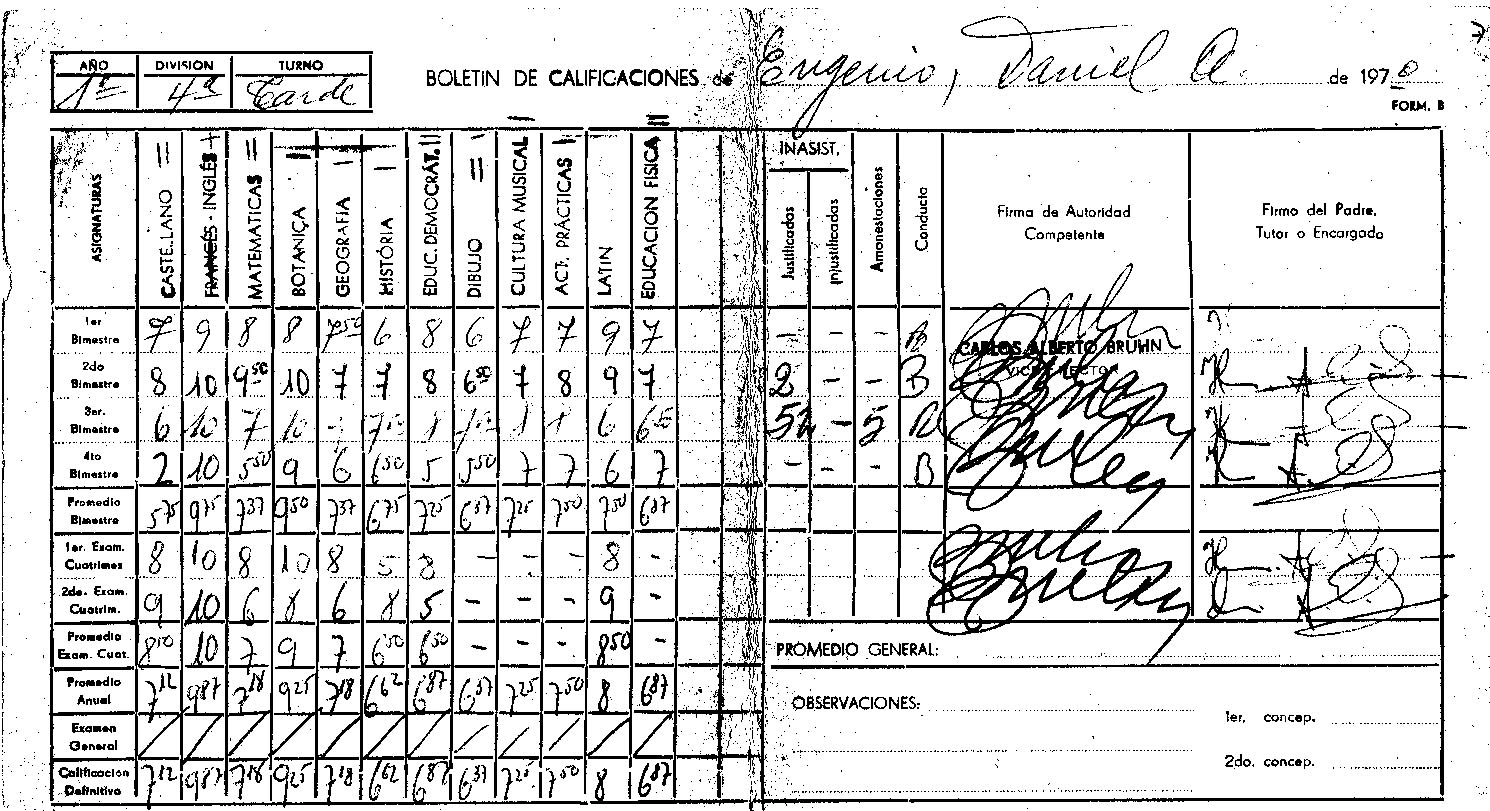 AÑO DIVISION TURNO
1º 4ª Tarde
BOLETIN DE CALIFICACIONES de Eugenio, Daniel A. de 1970
FORM. B
ASIGNATURAS CASTELLANO FRANCÉS - INGLÉS MATEMATICAS BOTANICA GEOGRAFIA HISTÓRIA EDUC. DEMOCRÁT. DIBUJO CULTURA MUSICAL ACT. PRÁCTICAS LATIN EDUCACION FISICA
INASIST.
Justificadas Injustificadas Amonestaciones Conducta
Firma de Autoridad Competente
Firma del Padre, Tutor o Encargado
1er Bimestre 7 9 8 8 750 6 8 6 7 7 9 7 - - - B
CARLOS ALBERTO BRUHN
2do Bimestre 8 10 950 10 7 7 8 650 7 8 9 7 2 - - B
3er. Bimestre 6 10 7 10 6 650 - 5
4to Bimestre 2 10 550 9 6 650 5 550 7 7 6 7 - - - B
Promedio Bimestre 575 975 737 950 737 675 725 637 725 750 750 687
1er. Exam. Cuatrimes 8 10 8 10 8 5 8 - - - 8 -
2do. Exam. Cuatrim. 9 10 6 8 6 8 5 - - - 9 -
Promedio Exam. Cuat. 850 10 7 9 7 650 650 - - - 850 -
PROMEDIO GENERAL:
Promedio Anual 712 987 718 925 718 662 687 637 725 750 8 687
OBSERVACIONES:
1er. concep.
Examen General
2do. concep.
Calificacion Definitivo 712 987 718 925 718 662 687 637 725 750 8 687